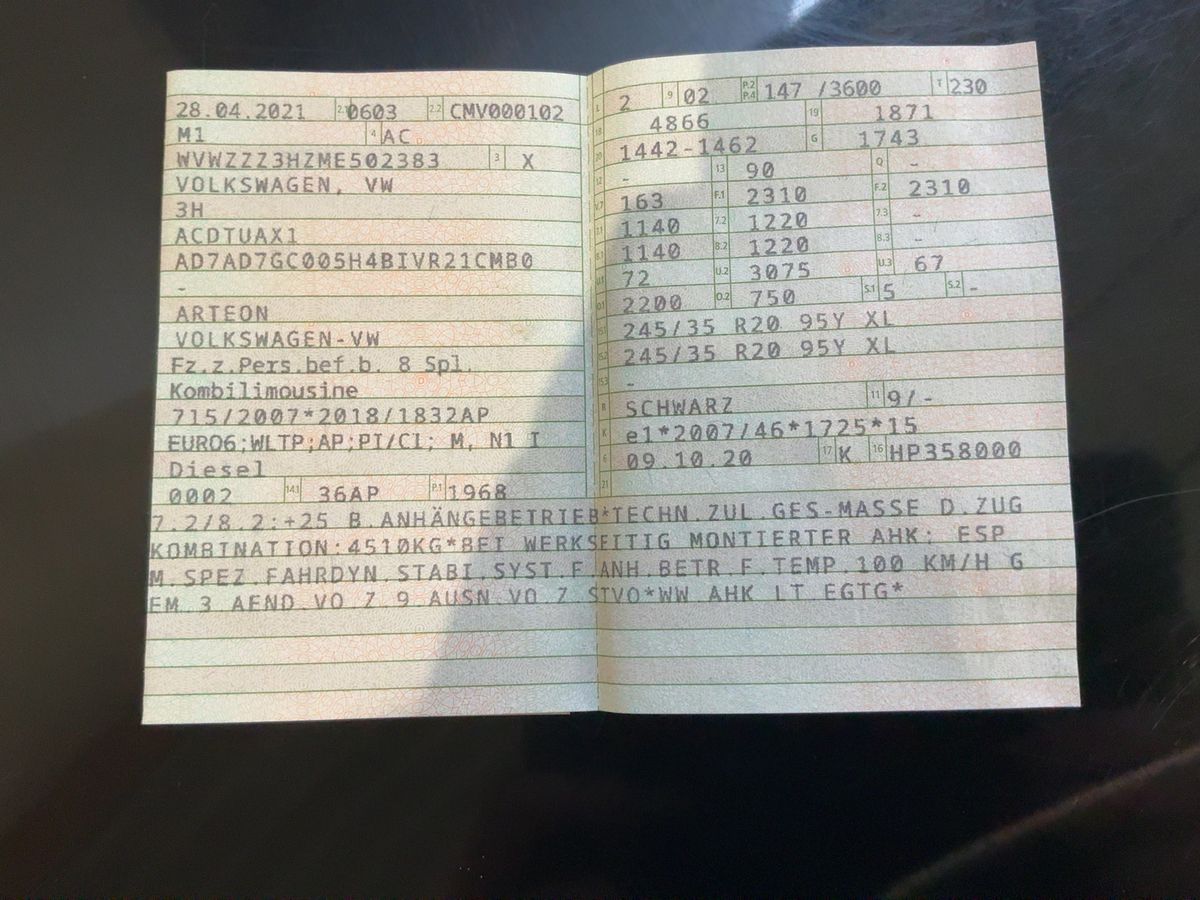 28.04.2021 2.1 0603 2.2 CMV000102
M1 4 AC
WVWZZZ3HZME502383 3 X
VOLKSWAGEN, VW
3H
ACDTUAX1
AD7AD7GC005H4BIVR21CMB0
-
ARTEON
VOLKSWAGEN-VW
Fz.z.Pers.bef.b. 8 Spl.
Kombilimousine
715/2007*2018/1832AP
EURO6;WLTP;AP;PI/CI; M, N1 I
Diesel
0002 14.1 36AP P.1 1968
L 2 9 02 P.2 P.4 147 /3600 T 230
18 4866 19 1871
20 1442-1462 G 1743
12 - 13 90 Q -
V.7 163 F.1 2310 F.2 2310
7.1 1140 7.2 1220 7.3 -
8.1 1140 8.2 1220 8.3 -
U.1 72 U.2 3075 U.3 67
O.1 2200 O.2 750 S.1 5 S.2 -
15.1 245/35 R20 95Y XL
15.2 245/35 R20 95Y XL
15.3 -
R SCHWARZ 11 9/-
K e1*2007/46*1725*15
6 09.10.20 17 K 16 HP358000
21
7.2/8.2:+25 B.ANHÄNGEBETRIEB*TECHN.ZUL.GES-MASSE D.ZUG
KOMBINATION:4510KG*BEI WERKSEITIG MONTIERTER AHK: ESP
M.SPEZ.FAHRDYN.STABI.SYST.F.ANH.BETR.F.TEMP.100 KM/H G
EM.3.AEND.VO.Z.9.AUSN.VO.Z.STVO*WW AHK LT.EGTG*